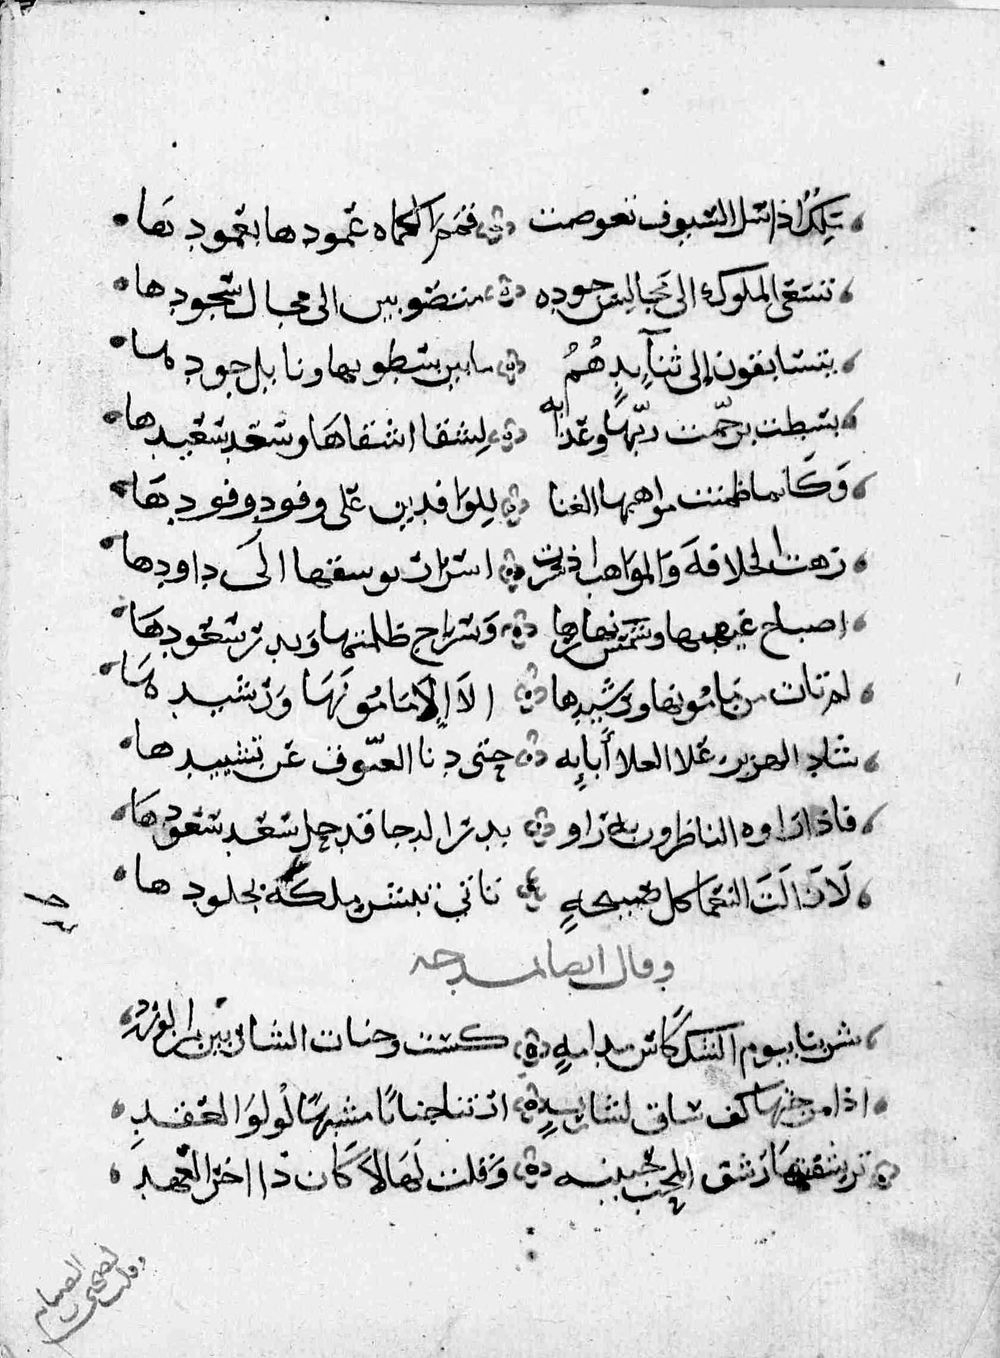 ملك اذا سل السيوف تعوضت فقم الكماه غمودها بغمودها
تسعى الملوك الى مجالس جوده منضويين الى مجال سجودها
يتسابقون الى ثنا يدٍ هُمُ ما بين سطوبها ونايل جودها
بسطت برحمت ربها وعذابه لشقا اشقاها وسعد سعيدها
وَكَانما ظمنت مواهبها الغنا لِلوَافدين عَلى وفود وفودهَا
زهت الخلافة والمواهب اذ سرت اسرار يوسفها الَى داودها
اصباح غيهبها وشمس نهارها وَسراج ظلمتها وبدر سعودهَا
لم تات من مامونها ورشيدها الا الامَامونَهَا وَرشيدهَا
شاد الهزبر علا العلا أبايه حتى دنا العيوف عن تشييدها
فاذا راوه الناظرون راو بدر الدجا قد حل سعد سعودهَا
لَازَالَت النعما كل صبيحةٍ تاتي تبشر ملكه بخلودها
وقال ايضا يمدحه
شربنا بيوم السكر كاس مدامةٍ كست وجنات الشاربين بها الورد
اذا مزجتها كف ساق لشاربٍ ارتنا جنانا مشبها لولو العقدِ
ترشفتها رشق المحب حبيبه وَقلت لَهَا لاكَان ذا اخر العهد